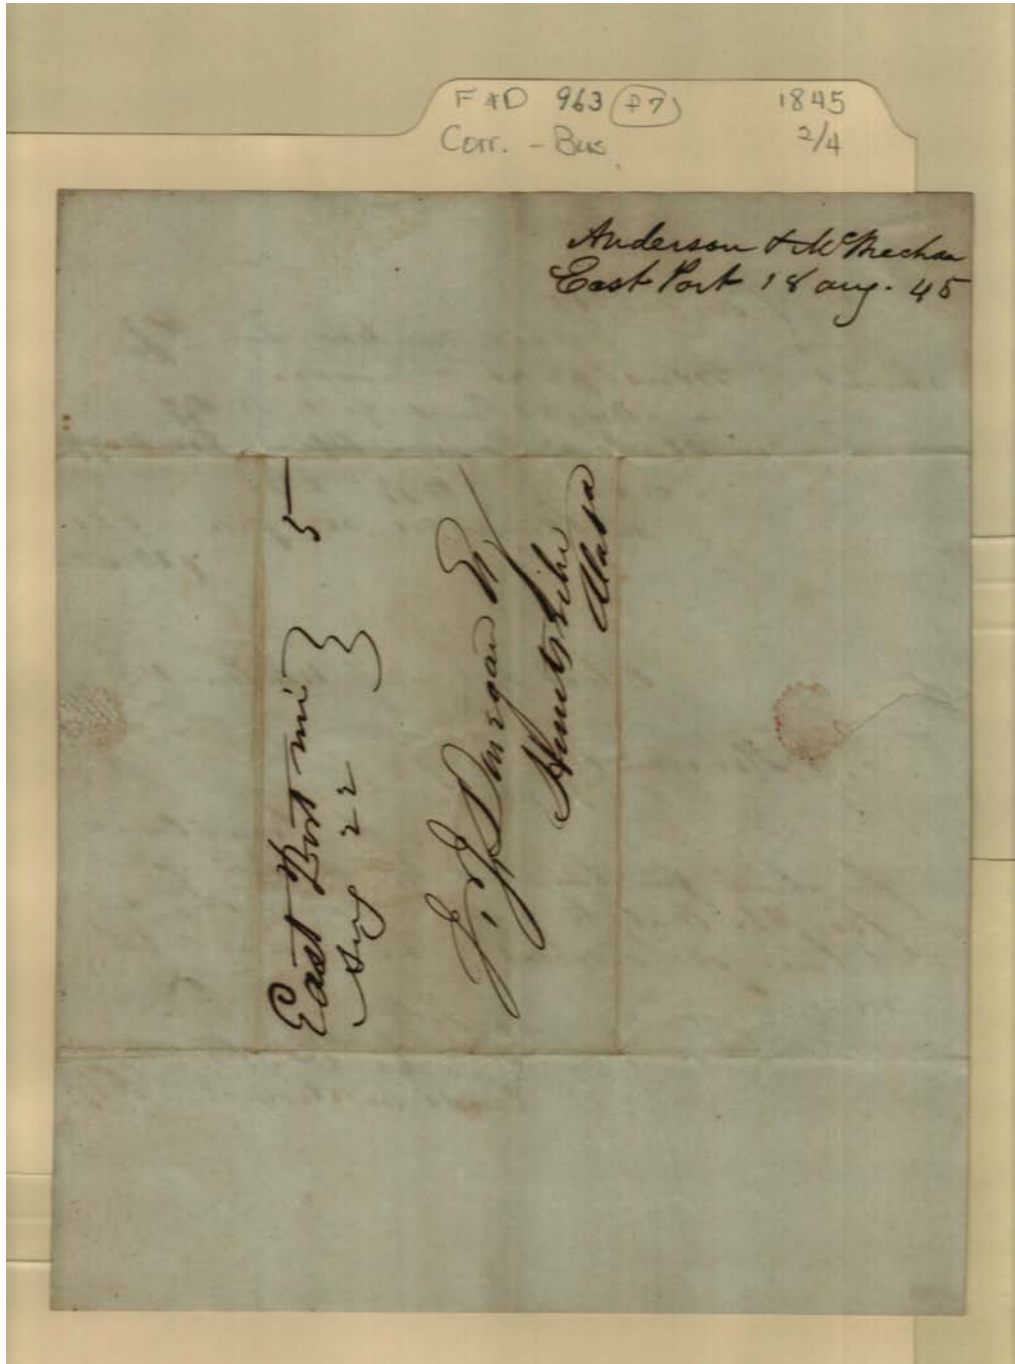 F & D 963 (P7) 1845
Corr. - Bus. 2/4
Anderson & McMechan
East Port 18 aug. 45
East Port mi } 5
Aug 22
J. J. Donegan Esq
Huntsville
Alaba